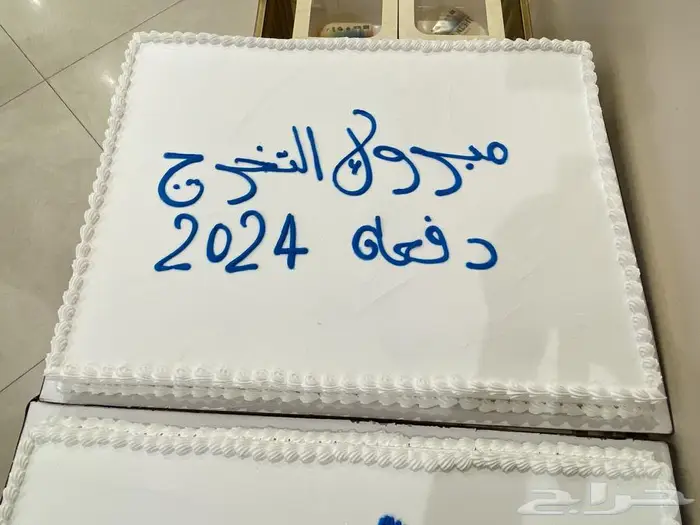 مبروك التخرج
دفعه 2024
حراج